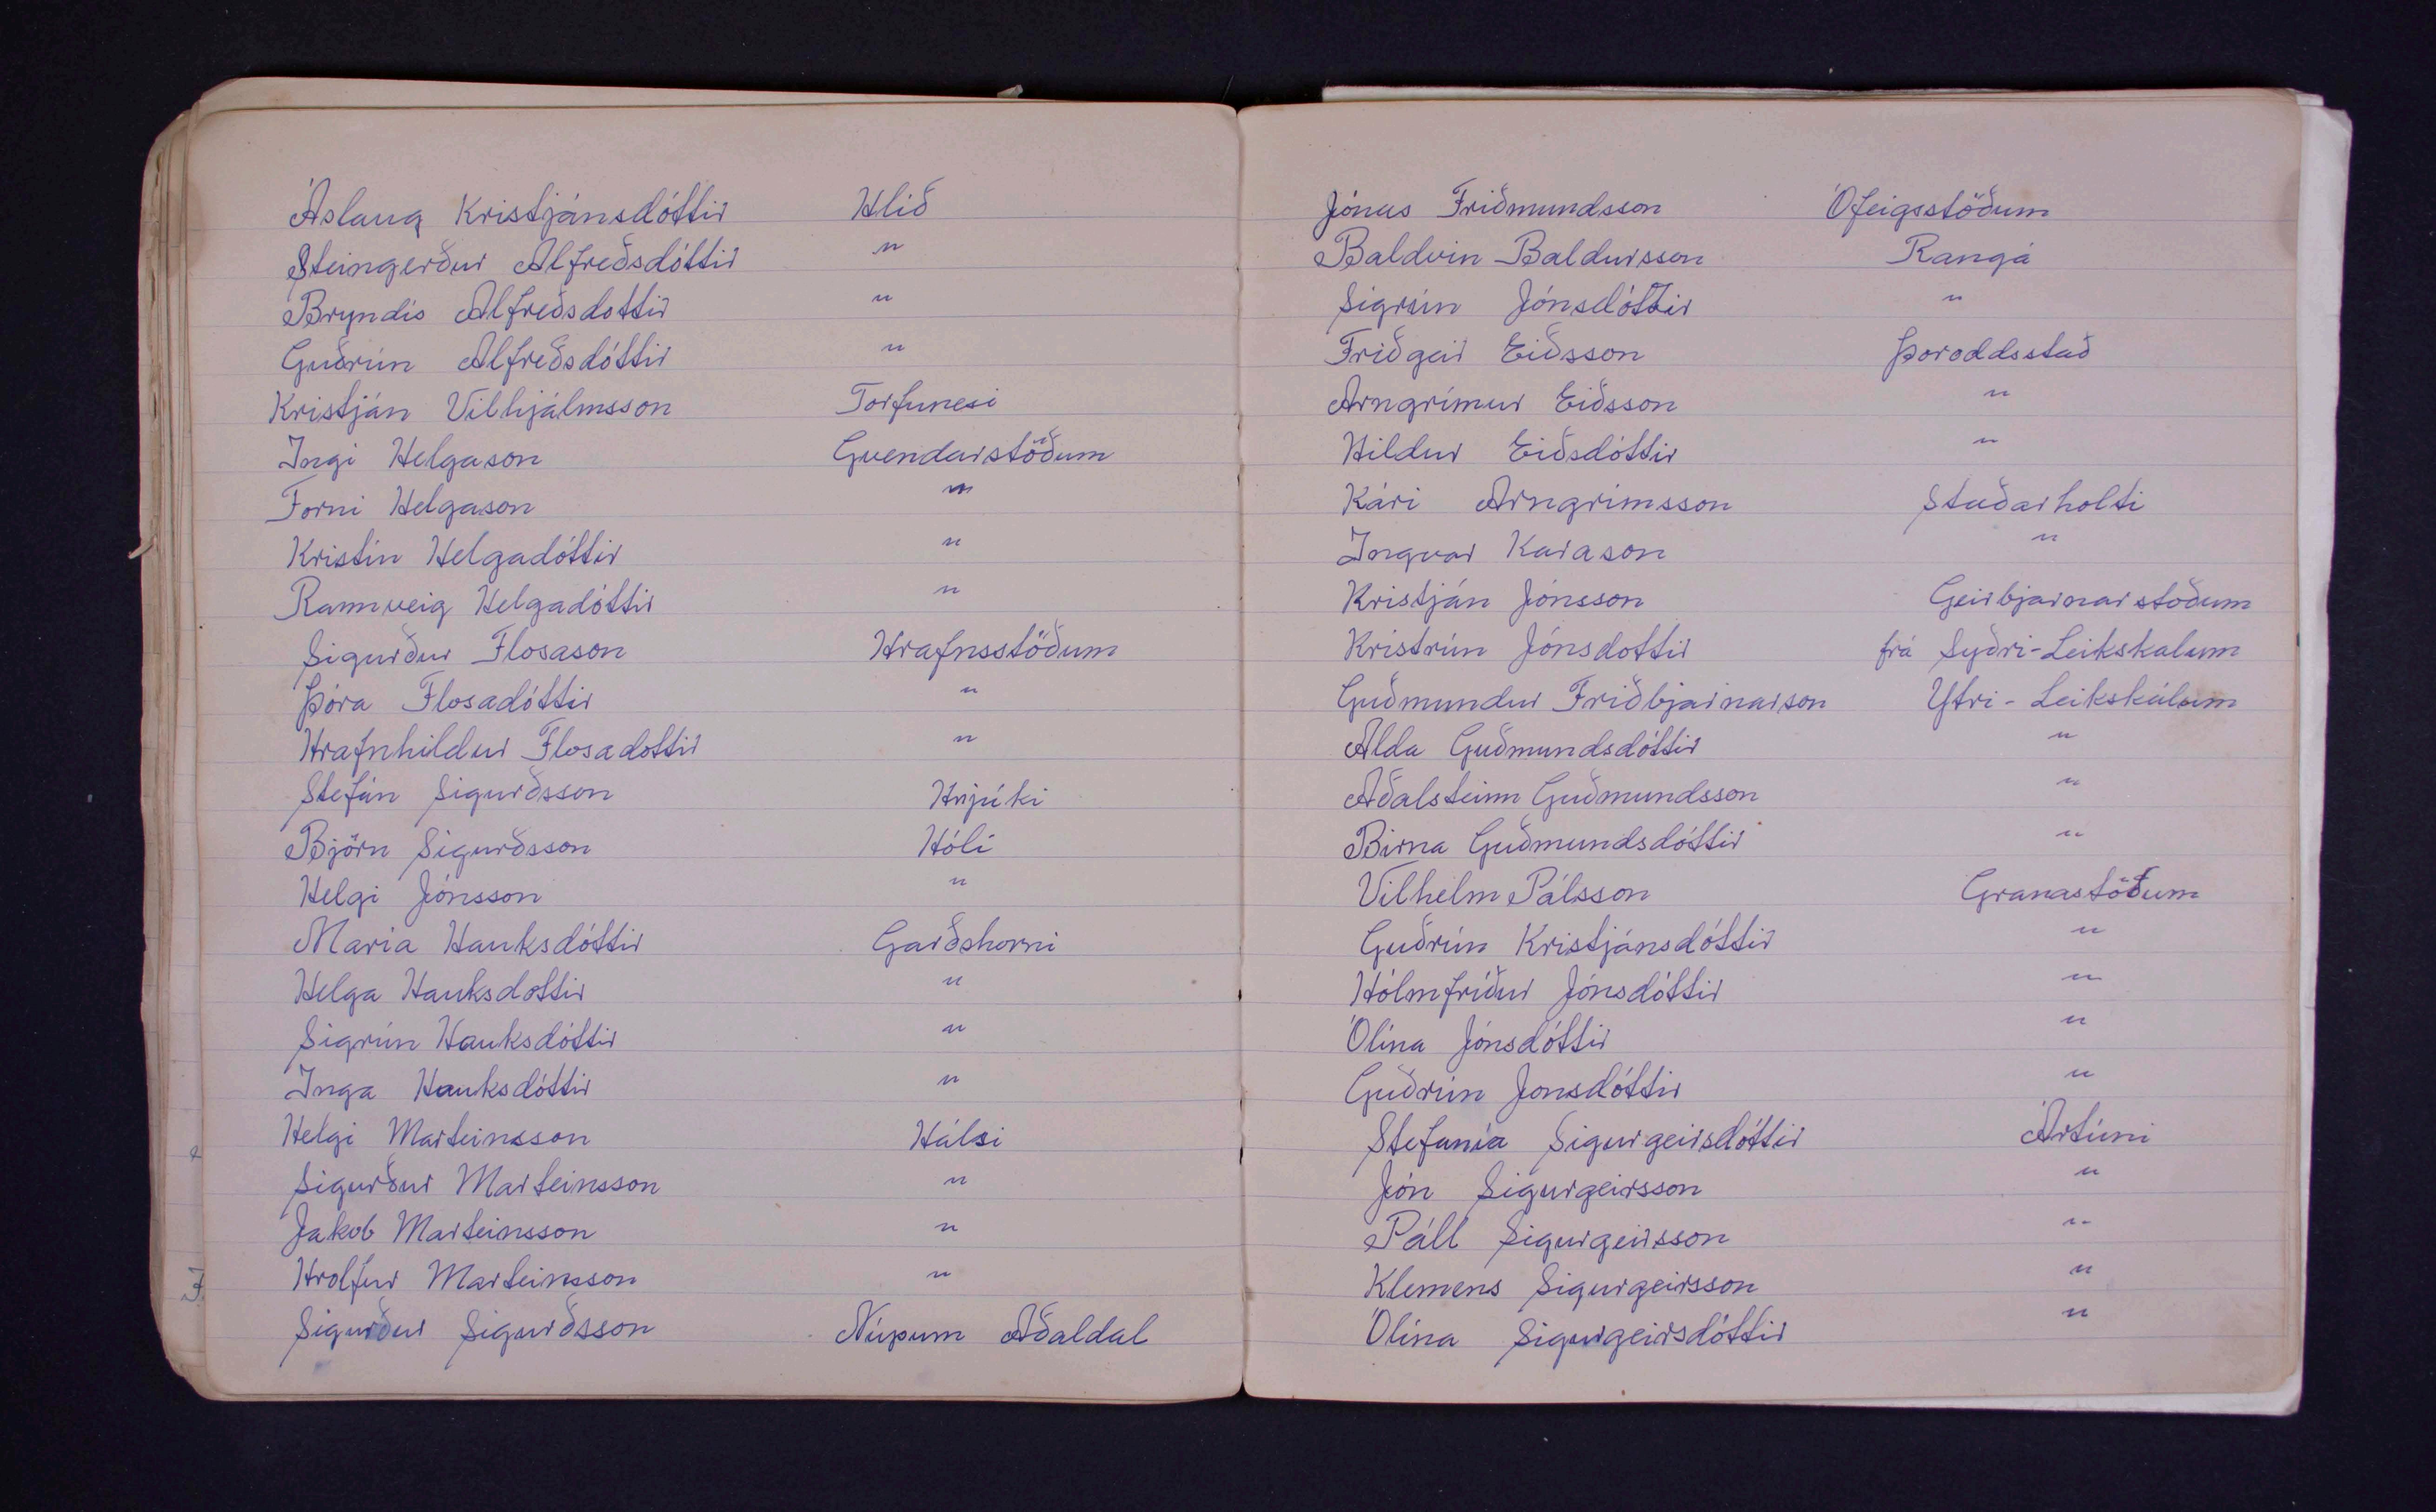 Áslaug Kristjánsdóttir Hlíð
Steingerður Alfreðsdóttir "
Bryndís Alfreðsdottir "
Guðrún Alfreðsdóttir "
Kristján Vilhjálmsson Torfunesi
Ingi Helgason Gvendarstöðum
Forni Helgason "
Kristín Helgadóttir "
Rannveig Helgadóttir "
Sigurður Flosason Hrafnsstöðum
Þóra Flosadóttir "
Hrafnhildur Flosadottir "
Stefán Sigurðsson Hnjúki
Björn Sigurðsson Hóli
Helgi Jónsson "
María Hauksdóttir Garðshorni
Helga Hauksdottir "
Sigrún Hauksdóttir "
Inga Hauksdóttir "
Helgi Marteinsson Hálsi
Sigurður Marteinsson "
Jakob Marteinsson "
Hrolfur Marteinsson "
Sigurður Sigurðsson Núpum Aðaldal
Jónas Friðmundsson Ófeigsstöðum
Baldvin Baldursson Rangá
Sigrún Jónsdóttir "
Friðgeir Eiðsson Þoroddsstað
Arngrímur Eiðsson "
Hildur Eiðsdóttir "
Kári Arngrímsson Staðarholti
Ingvar Karason "
Kristján Jónsson Geirbjarnarstöðum
Kristrún Jónsdottir frá Syðri-Leikskalum
Guðmundur Friðbjarnarson Ytri-Leikskálum
Alda Guðmundsdóttir "
Aðalsteinn Guðmundsson "
Birna Guðmundsdóttir "
Vilhelm Pálsson Granastöðum
Guðrún Kristjánsdóttir "
Hólmfríður Jónsdóttir "
Ólína Jónsdóttir "
Guðrún Jonsdóttir "
Stefanía Sigurgeirsdóttir Ártúni
Jón Sigurgeirsson "
Páll Sigurgeirsson "
Klemens Sigurgeirsson "
Ólína Sigurgeirsdóttir "